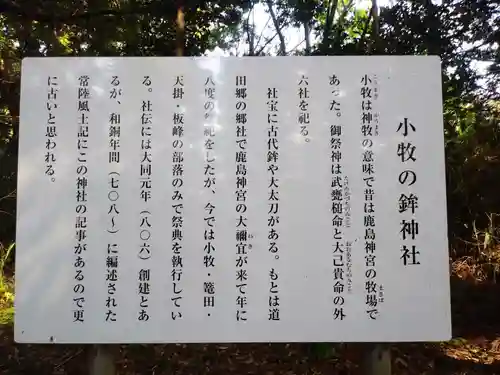 小牧の鉾神社
小牧は神牧の意味で昔は鹿島神宮の牧場で
あった。御祭神は武甕槌命と大己貴命の外
六社を祀る。
社宝に古代鉾や大太刀がある。もとは道
田郷の郷社で鹿島神宮の大禰宜が来て年に
八度の祭祀をしたが、今では小牧・篭田・
天掛・板峰の部落のみで祭典を執行してい
る。社伝には大同元年（八〇六）創建とあ
るが、和銅年間（七〇八～）に編述された
常陸風土記にこの神社の記事があるので更
に古いと思われる。